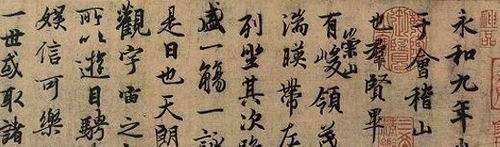 永和九年
于會稽山
也羣賢畢
有崇山峻領茂
湍暎帶左
列坐其次
盛一觴一詠
是日也天朗
觀宇宙之
所以遊目騁
娛信可樂
一世或取諸